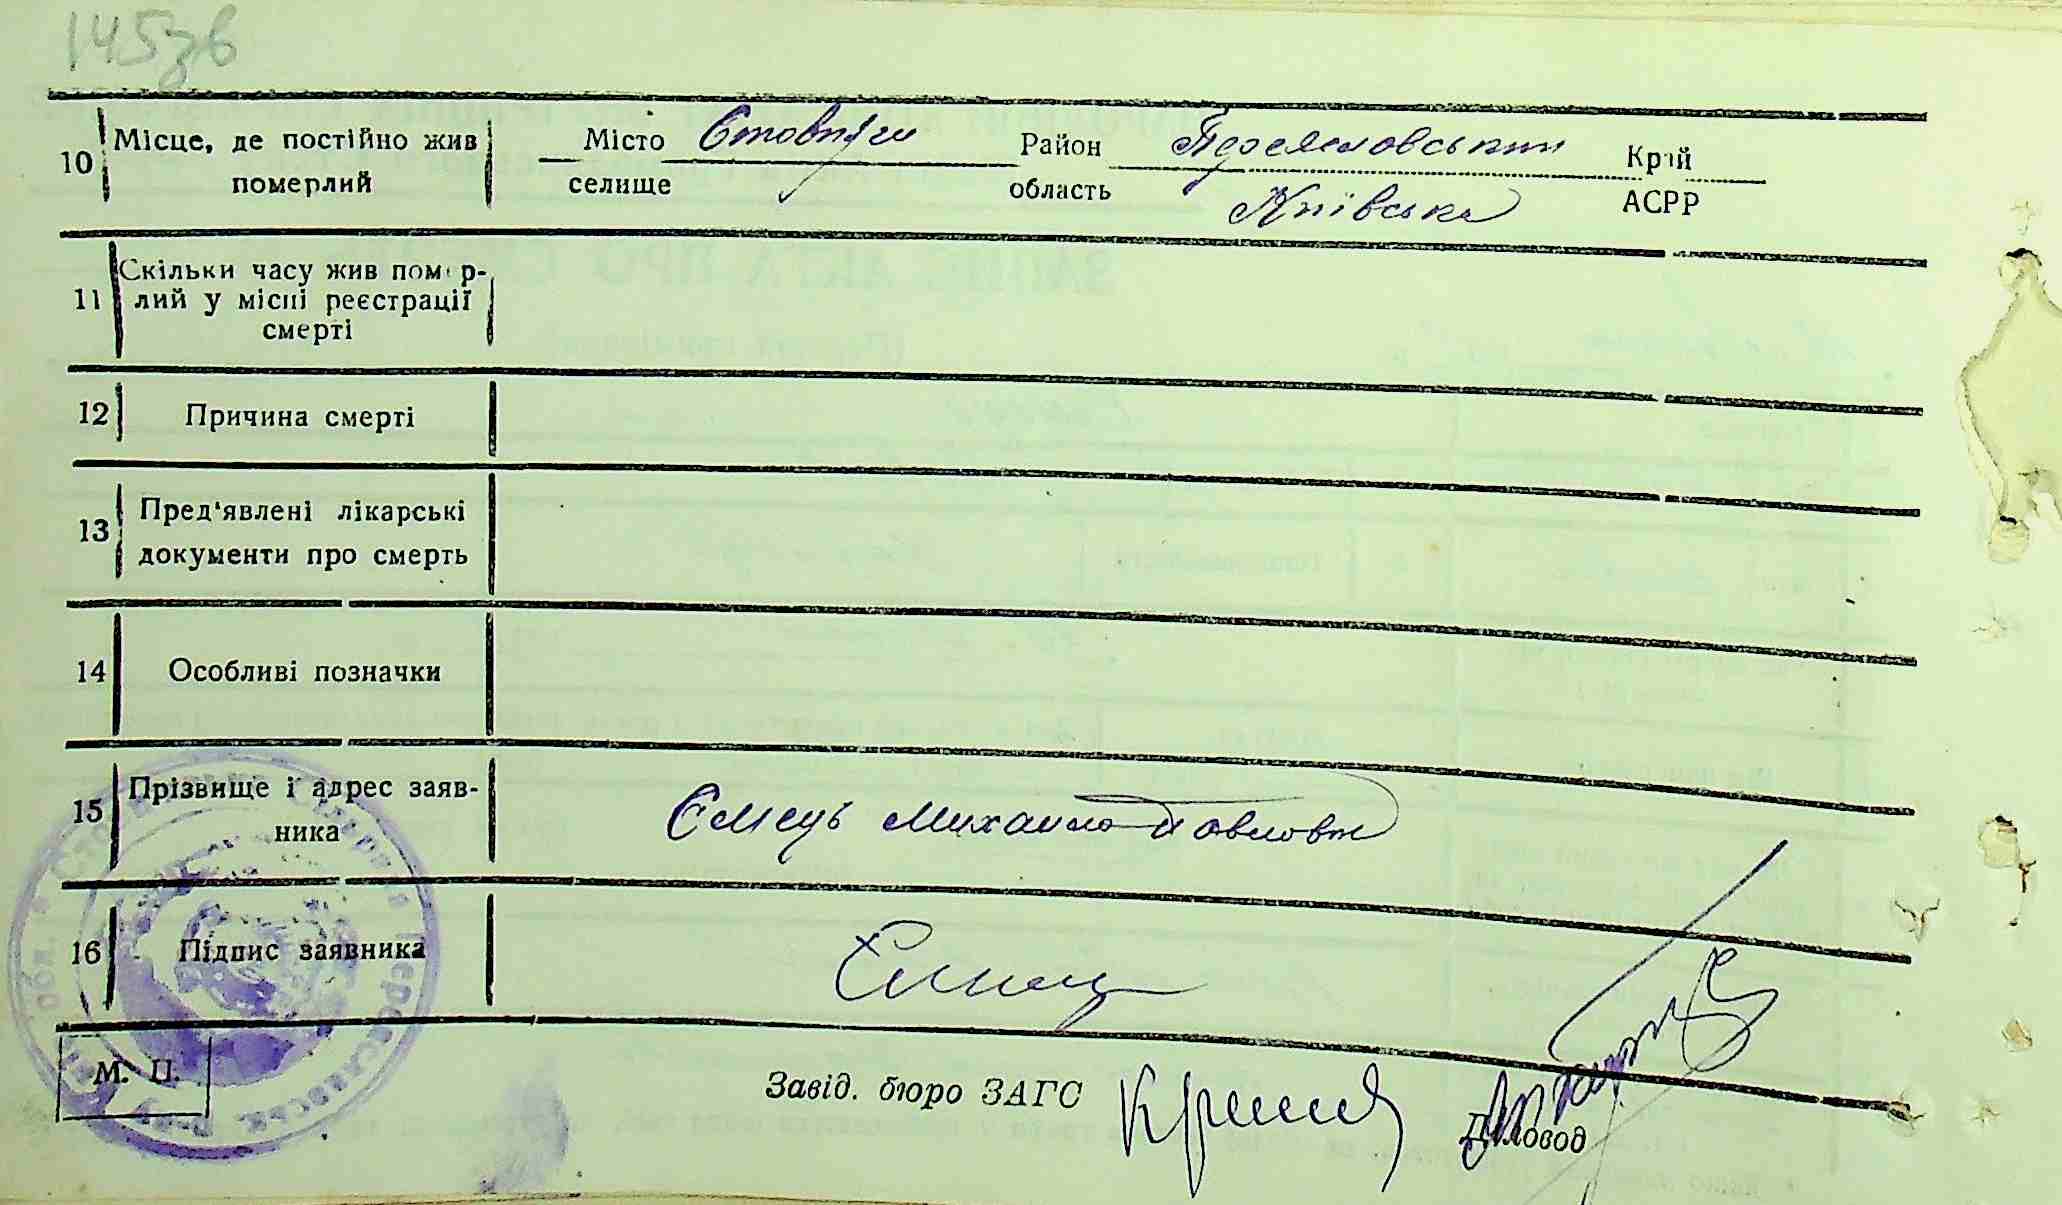 145зв
10 Місце, де постійно жив Місто Стовпяги Район Переяловський Край
померлий селище область Київська АСРР
Скільки часу жив помер-
11 лий у місці реєстрації
смерті
12 Причина смерті
Пред'явлені лікарські
13 документи про смерть
14 Особливі позначки
15 Прізвище і адрес заяв- Ємець Михайло Павлович
ника
16 Підпис заявника Ємець
М. П. Завід. бюро ЗАГС
Діловод